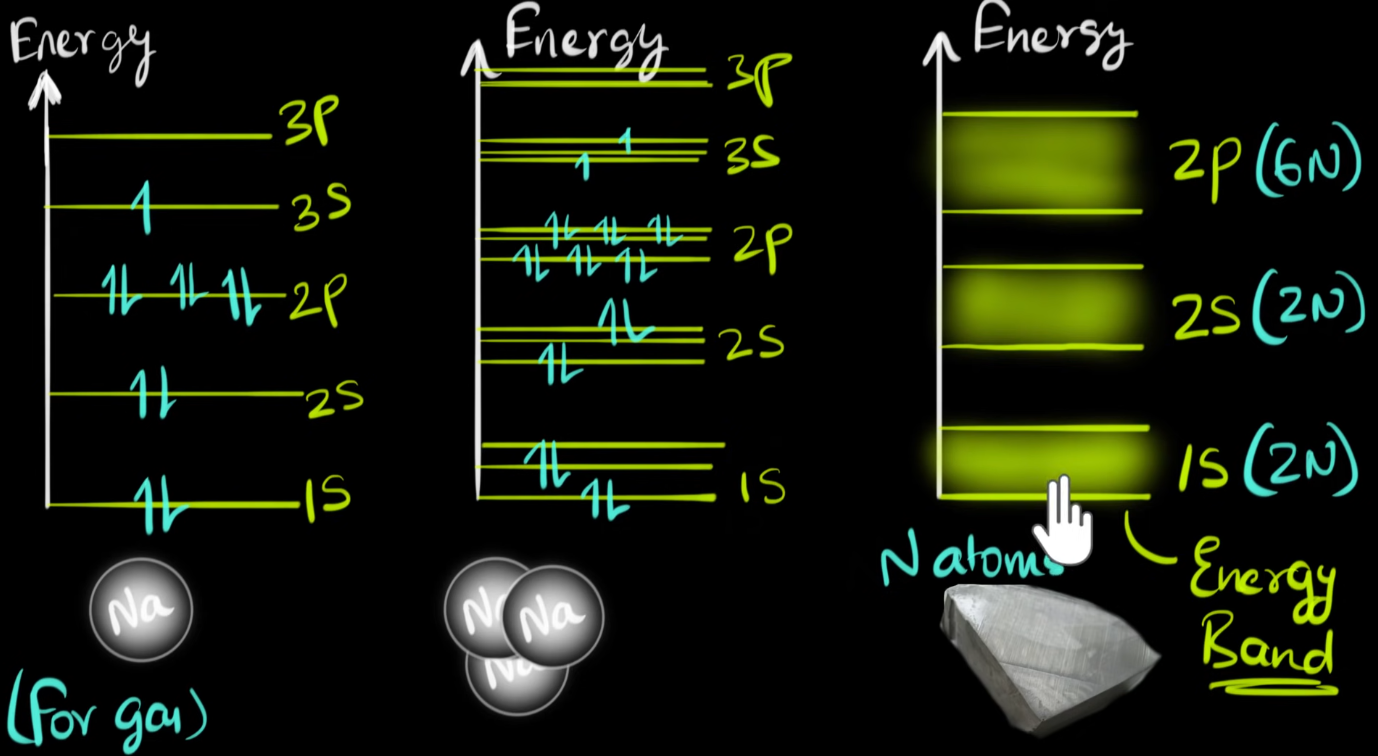 Energy
3P
3S
2P
2S
1S
Na
(For gas)
Energy
3P
3S
2P
2S
1S
Na
Na
Na
Energy
2P (6N)
2S (2N)
1S (2N)
N atoms
Energy
Band